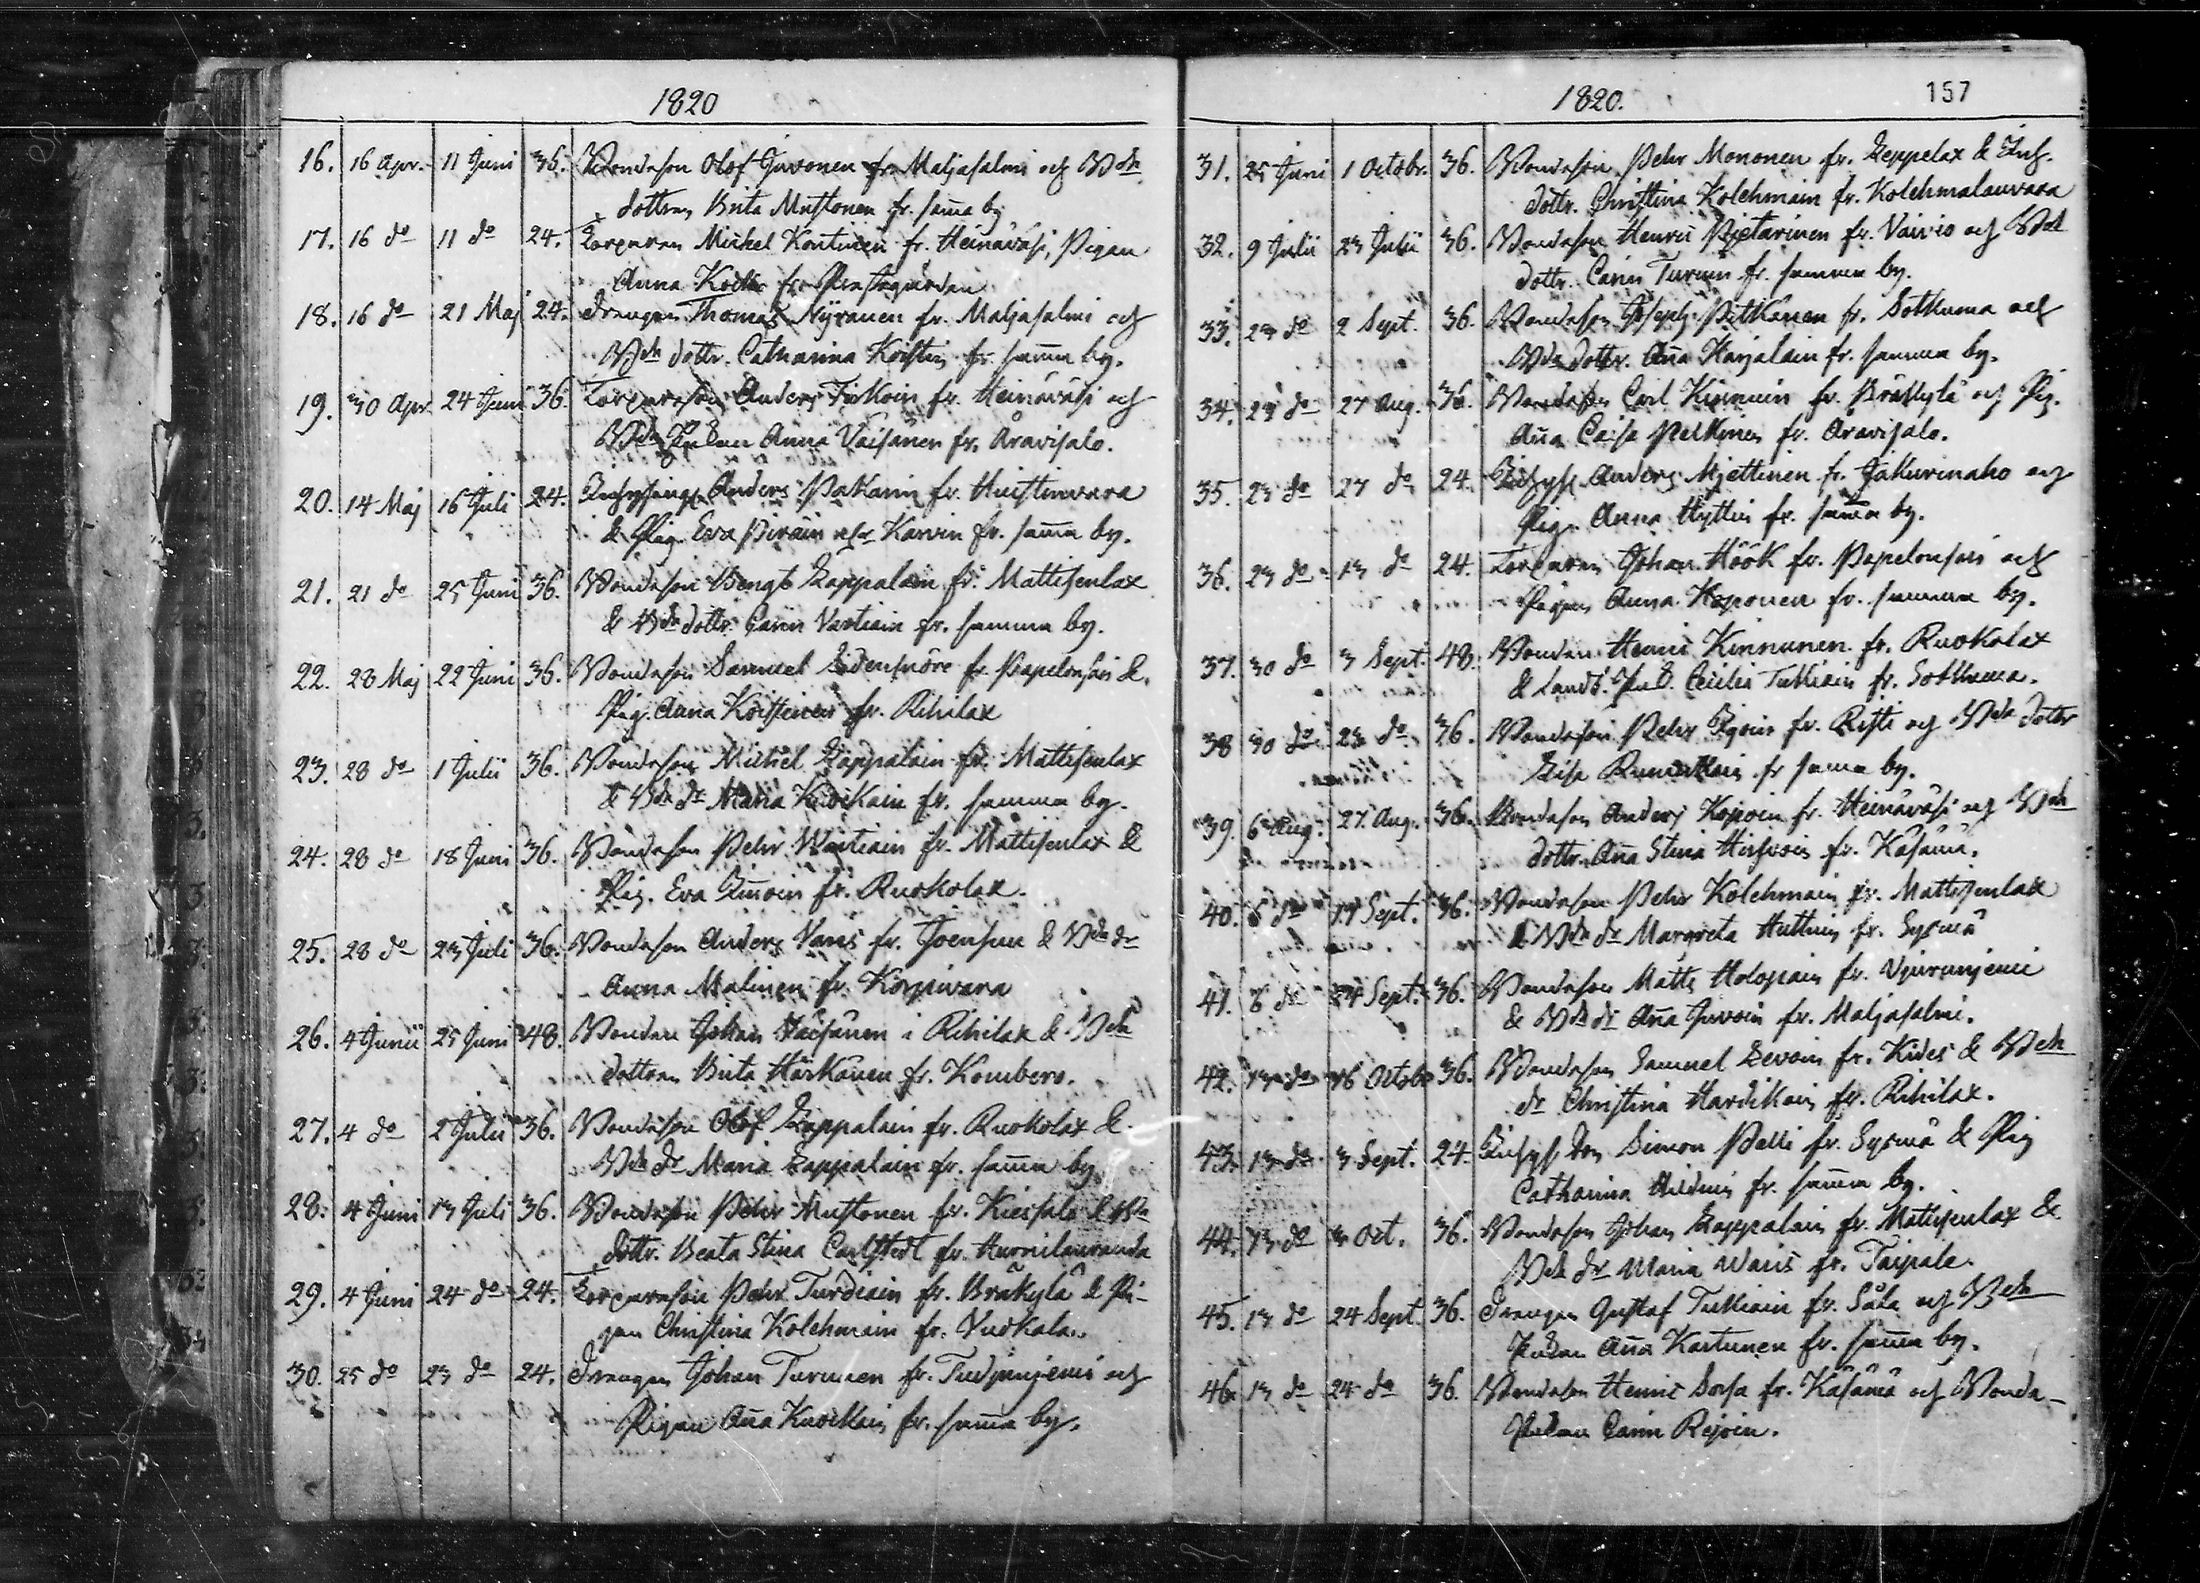 1820
16. 16 Apr. 11 Juni 36. Bondeson Olof Juvonen fr. Maljasalmi och Bde
dottren Brita Mustonen fr. samma by
17. 16 do 11 do 24. Torparen Michel Kontinen fr. Heinäväsi, Pigan
Anna fr. Prestgården
18. 16 do 21 Maj 24. Drengen Thomas Nyranen fr. Maljasalmi och
Bde dottr. Catharina fr. samma by.
19. 30 Apr. 24 Juni 36. Torpareson Anders fr. Heinäväsi och
Bde Enkan Anna Väisänen fr. Aravisalo.
20. 14 Maj 16 Juli 24. Anders Pakarin fr.
& Pig. Eva Piräin Karvin fr. samma by.
21. 21 do 25 Juni 36. Bondeson Bengt Lappalain fr. Mattisenlax
& Bde dottr. Carin Vartiain fr. samma by.
22. 28 Maj 22 Juni 36. Bondeson Samuel fr. Papelonsari &
Pig. Anna fr. Rihilax
23. 28 do 1 Julii 36. Bondeson Michel Lappalain fr. Mattisenlax
& Bde dr Maria fr. samma by.
24. 28 do 18 Juni 36. Bondeson Pehr Wartiain fr. Mattisenlax &
Pig. Eva fr. Ruokolax.
25. 28 do 23 Juli 36. Bondeson Anders Varis fr. Joensuu & Bde dr
Anna Malinen fr. Korpivara
26. 4 Junii 25 Juni 48. Bonden Johan Väisänen i Rihilax & Bde
dottren Brita Härkänen fr. Kombero.
27. 4 do 2 Julii 36. Bondeson Olof Lappalain fr. Ruokolax &
Bde dr Maria Lappalain fr. samma by.
28. 4 Juni 13 Juli 36. Bondeson Pehr Mustonen fr. & Bde
dottr. Beata Stina Carlstedt fr.
29. 4 Juni 24 do 24. Torpareson Pehr Turdiain fr. Bräkylä & Pi-
gan Christina Kolehmain fr. Vuokala.
30. 25 do 23 do 24. Drengen Johan Turunen fr. och
Pigan Aña fr. samma by.
1820. 157
31. 25 Juni 1 Octobr. 36. Bondeson Pehr Mononen fr. Leppelax &
dottr. Christina Kolehmain fr. Kolehmalanvara
32. 9 Julii 23 Julii 36. Bondeson Henric Pietarinen fr. Vaivio och Bde
dottr. Carin Turuin fr. samma by.
33. 23 do 2 Sept. 36. Bondeson Joseph Pitkänen fr. Sotkuma och
Bde dottr. Aña Karjalain fr. samma by.
34. 23 do 27 Aug. 36. Bondeson Carl Kinnuin fr. Bräkylä och Pig.
Aña Caisa fr. Aravisalo.
35. 23 do 27 do 24. Anders Mjettinen fr. och
Pig. Anna Hyttin fr. samma by.
36. 23 do 13 do 24. Torparen Johan Höök fr. Papelonsari och
Pigan Anna Koponen fr. samma by.
37. 30 do 3 Sept. 48. Bonden Henric Kinnunen fr. Ruokolax
& Landb. Enk. Cecilia Tukiain fr. Sotkuma.
38 30 do 23 do 36. Bondeson Pehr fr. Risti och Bde dottr
Lisa fr samma by.
39. 6 Aug. 27 Aug. 36. Bondeson Anders fr. Heinäväsi och Bde
dottr. Aña Stina Hirvoin fr. Käsämä.
40. 6 do 17 Sept. 36. Bondeson Pehr Kolehmain fr. Mattisenlax
& Bde dr Margreta Huttuin fr. Sysmä
41. 6 do 24 Sept. 36. Bondeson Matts Holopain fr.
& Bde dr Aña Juvoin fr. Maljasalmi.
42. 13 do 16 Octobr 36. Bondeson Samuel Levoin fr. Kides & Bde
dr Christina Hardikain fr. Rihilax.
43. 13 do 3 Sept. 24. Simon Pelli fr. Sysmä & Pig
Catharina fr. samma by.
44. 13 do 3 Oct. 36. Bondeson Johan Lappalain fr. Mattisenlax &
Bde dr Maria Waris fr. Taipale.
45. 13 do 24 Sept. 36. Drengen Gustaf Tukiain fr. och Bde
Enkan Aña Kartunen fr. samma by.
46. 13 do 24 do 36. Bondeson Henric Sorsa fr. Käsämä och Bonde-
Enkan Carin Rejoin.